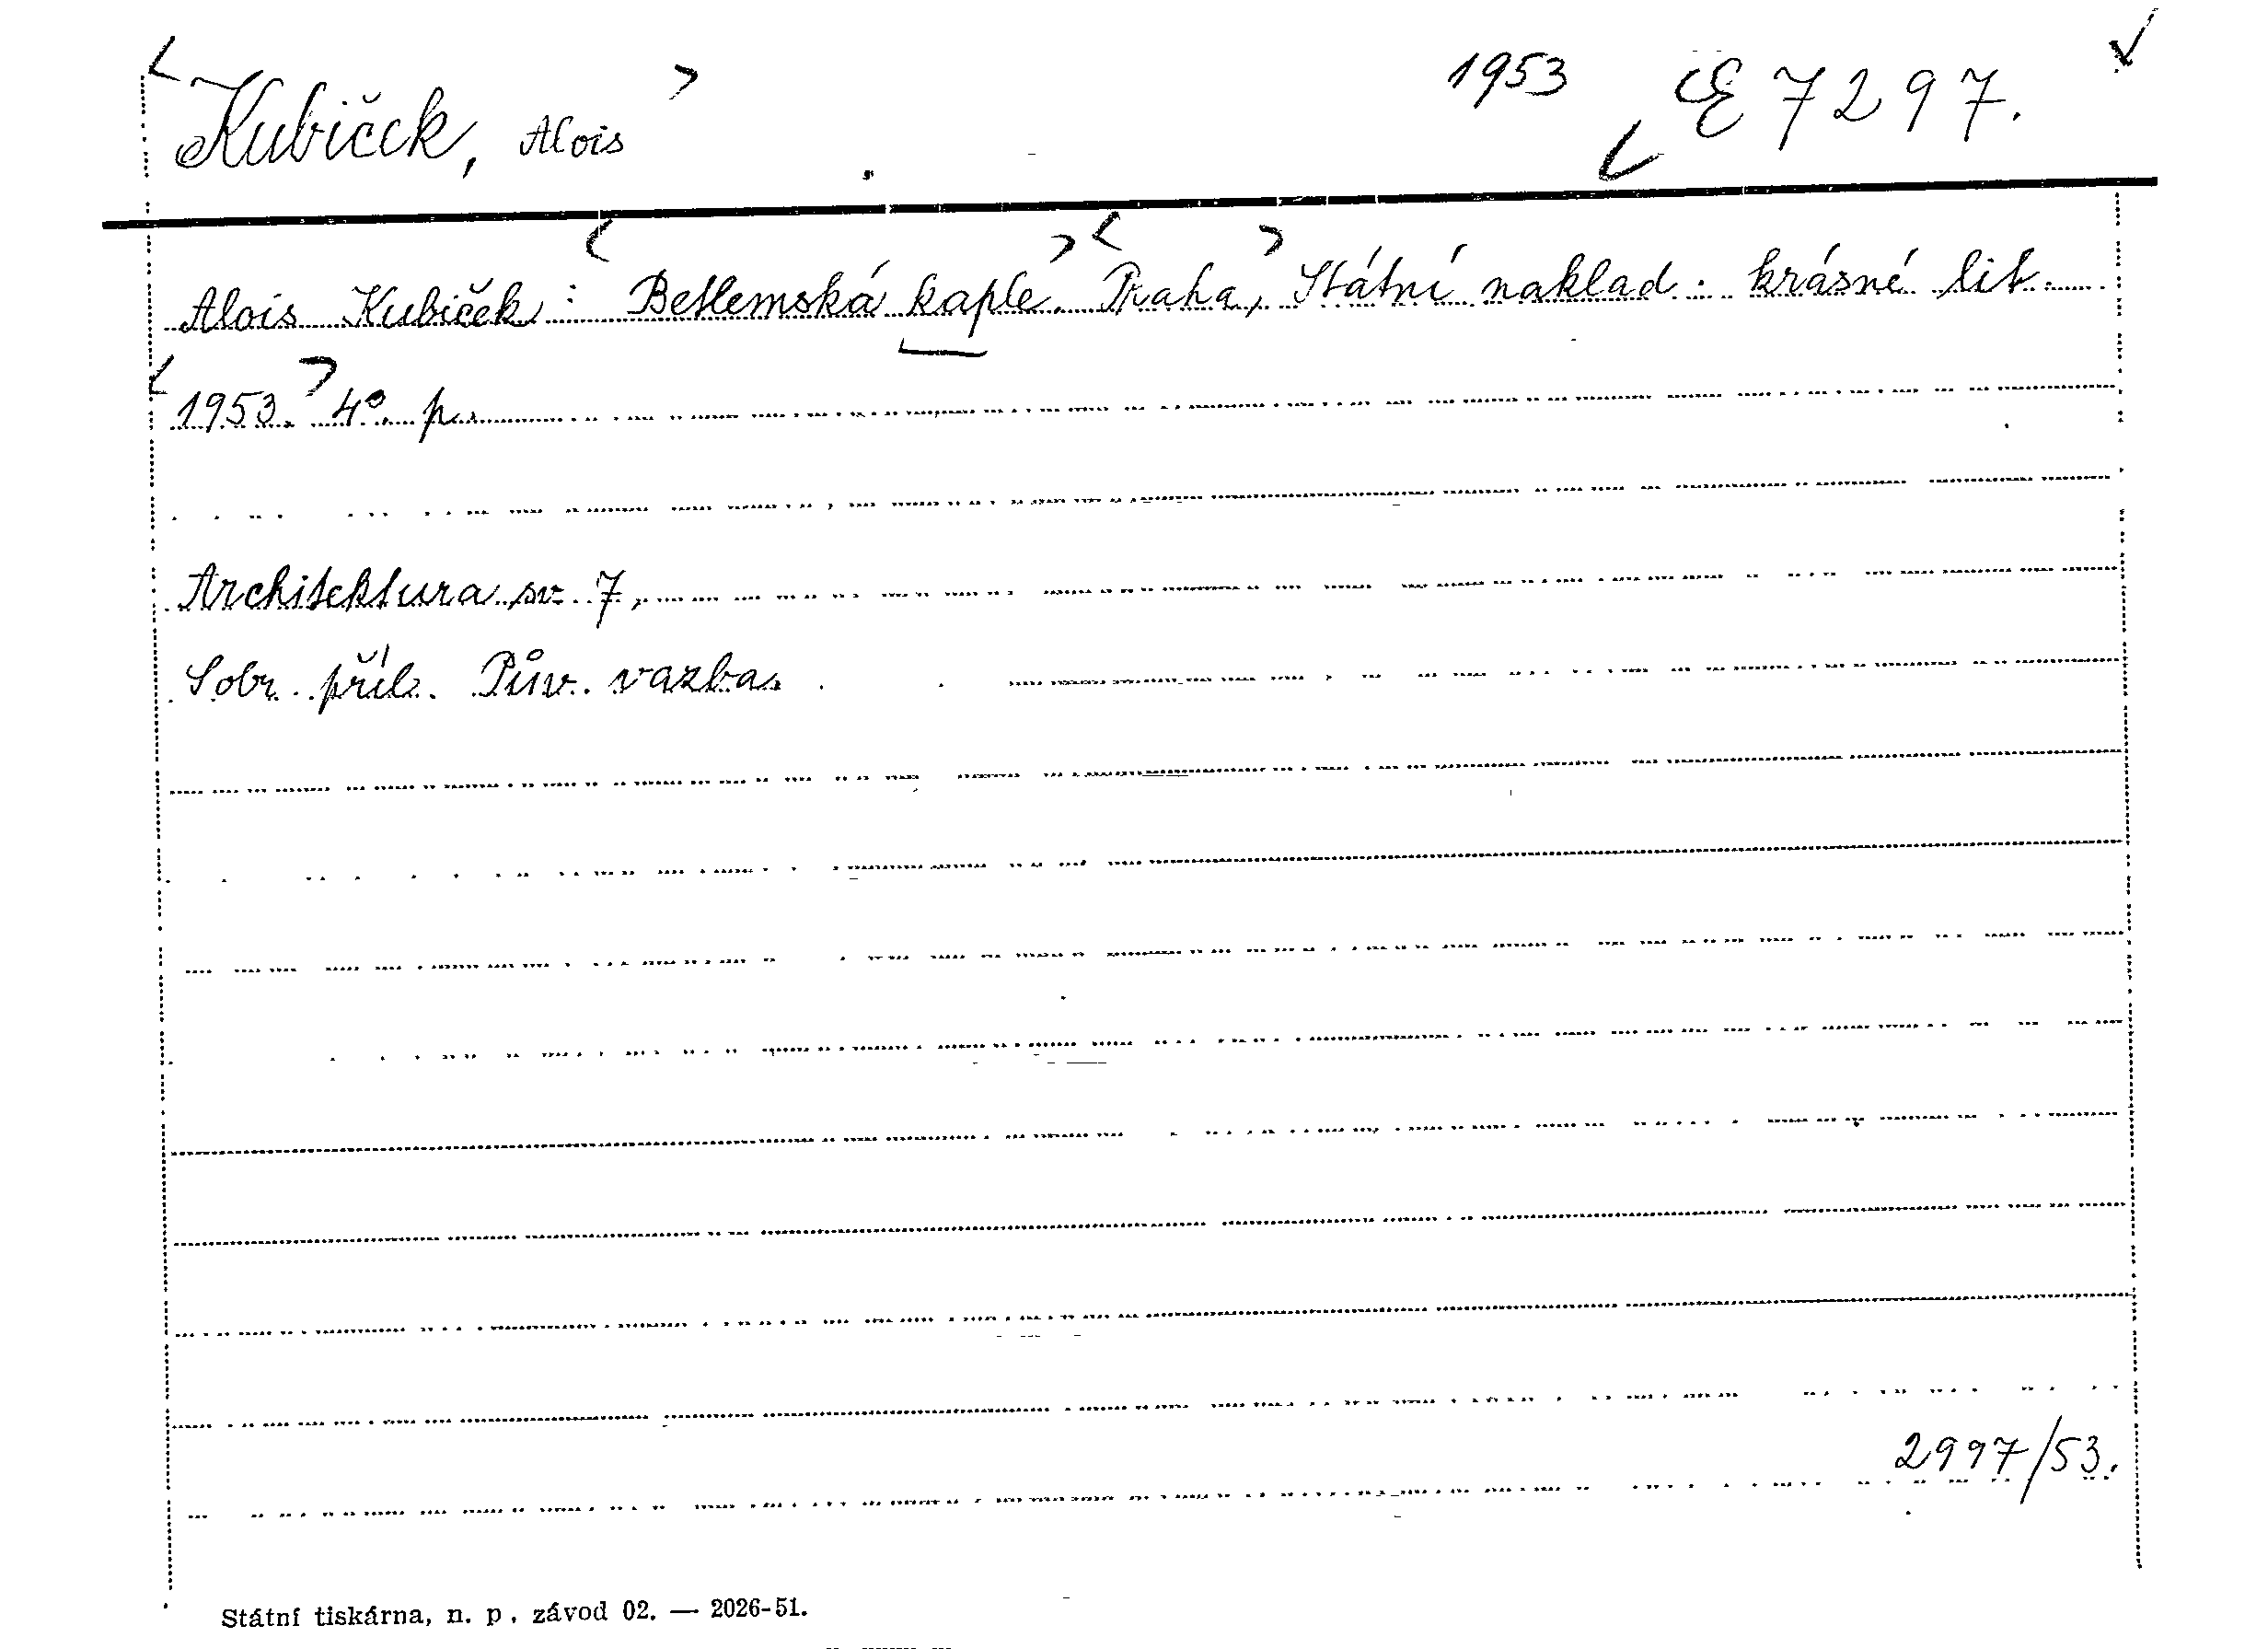 Kubíček, Alois 1953 E 7297.
Alois Kubíček: Betlemská kaple. Praha, Státní naklad. krásné lit.
1953. 4°. p.
Architektura sv. 7.
Sobr. příl. Pův. vazba.
2997/53.
Státní tiskárna, n. p. závod 02. — 2026-51.